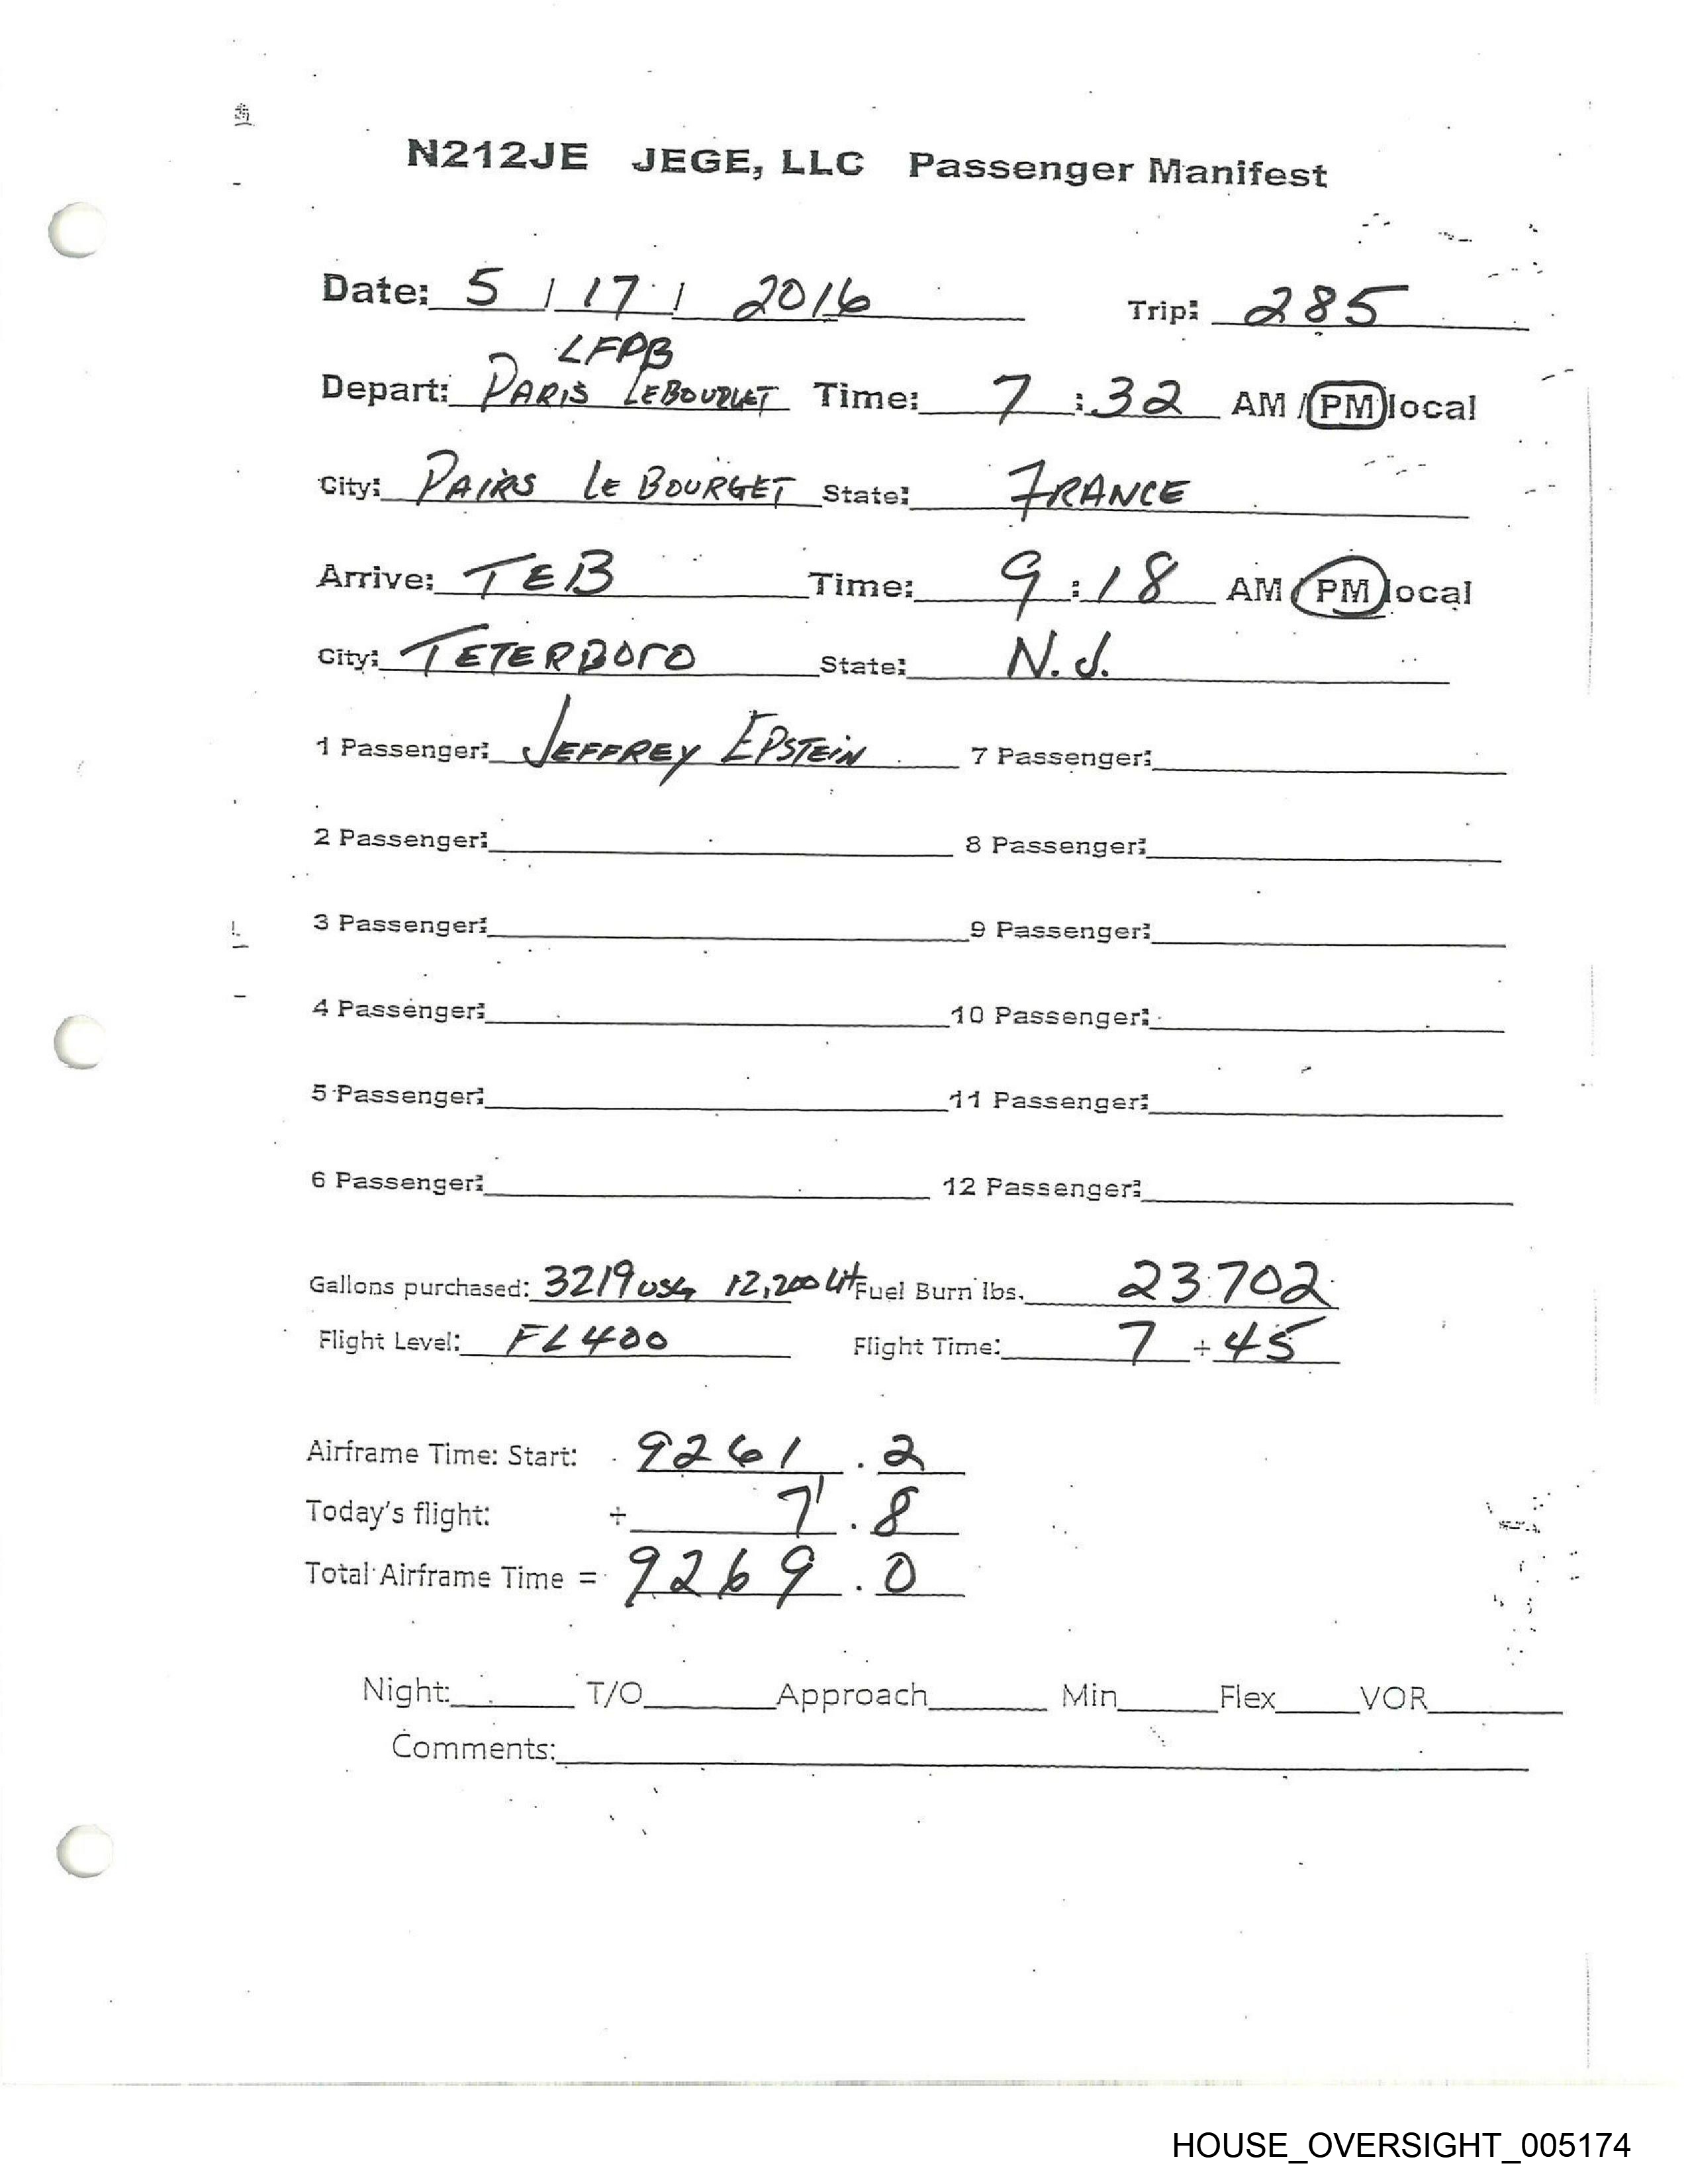 N212JE JEGE, LLC Passenger Manifest
Date: 5 / 17 / 2016 Trip: 285
LFPB
Depart: PARIS LEBOURGET Time: 7 : 32 AM / PM local
City: PAIRS LE BOURGET State: FRANCE
Arrive: TEB Time: 9 : 18 AM / PM local
City: TETERBORO State: N.J.
1 Passenger: JEFFREY EPSTEIN 7 Passenger:
2 Passenger: 8 Passenger:
3 Passenger: 9 Passenger:
4 Passenger: 10 Passenger:
5 Passenger: 11 Passenger:
6 Passenger: 12 Passenger:
Gallons purchased: 3219 USG 12,200 Lit Fuel Burn lbs. 23702
Flight Level: FL400 Flight Time: 7 + 45
Airframe Time: Start: 9261 . 2
Today's flight: + 7 . 8
Total Airframe Time = 9269 . 0
Night: T/O Approach Min Flex VOR
Comments:
HOUSE_OVERSIGHT_005174